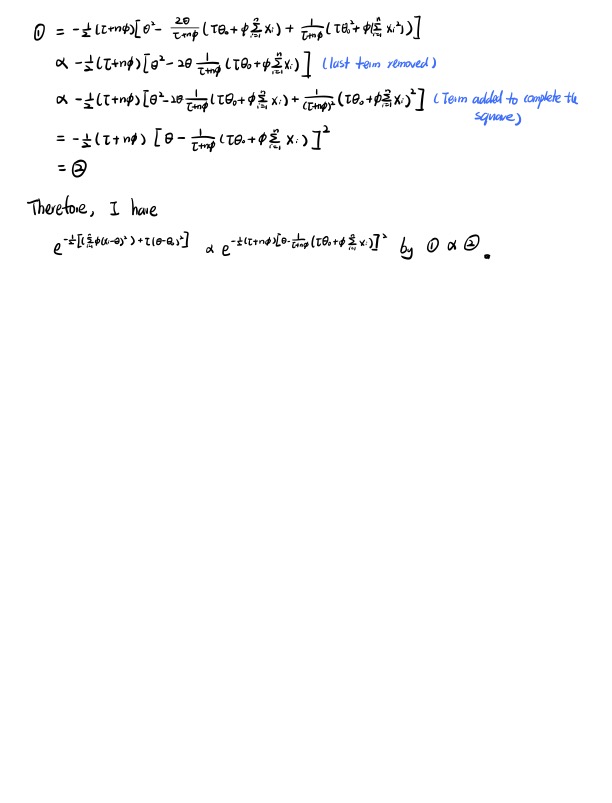 ① = -½(τ+nφ)[θ² - 2θ/(τ+nφ) (τθ₀ + φ∑ᵢ₌₁ⁿ xᵢ) + 1/(τ+nφ) (τθ₀² + φ(∑ᵢ₌₁ⁿ xᵢ²))]
∝ -½(τ+nφ)[θ² - 2θ 1/(τ+nφ) (τθ₀ + φ∑ᵢ₌₁ⁿ xᵢ)] (last term removed)
∝ -½(τ+nφ)[θ² - 2θ 1/(τ+nφ) (τθ₀ + φ∑ᵢ₌₁ⁿ xᵢ) + 1/(τ+nφ)² (τθ₀ + φ∑ᵢ₌₁ⁿ xᵢ)²] (Term added to complete the
square)
= -½(τ+nφ) [θ - 1/(τ+nφ) (τθ₀ + φ∑ᵢ₌₁ⁿ xᵢ)]²
= ②
Therefore, I have
e^{-½[(∑ᵢ₌₁ⁿ φ(xᵢ-θ)²) + τ(θ-θ₀)²]} ∝ e^{-½(τ+nφ)[θ - 1/(τ+nφ) (τθ₀ + φ∑ᵢ₌₁ⁿ xᵢ)]²} by ① ∝ ②.